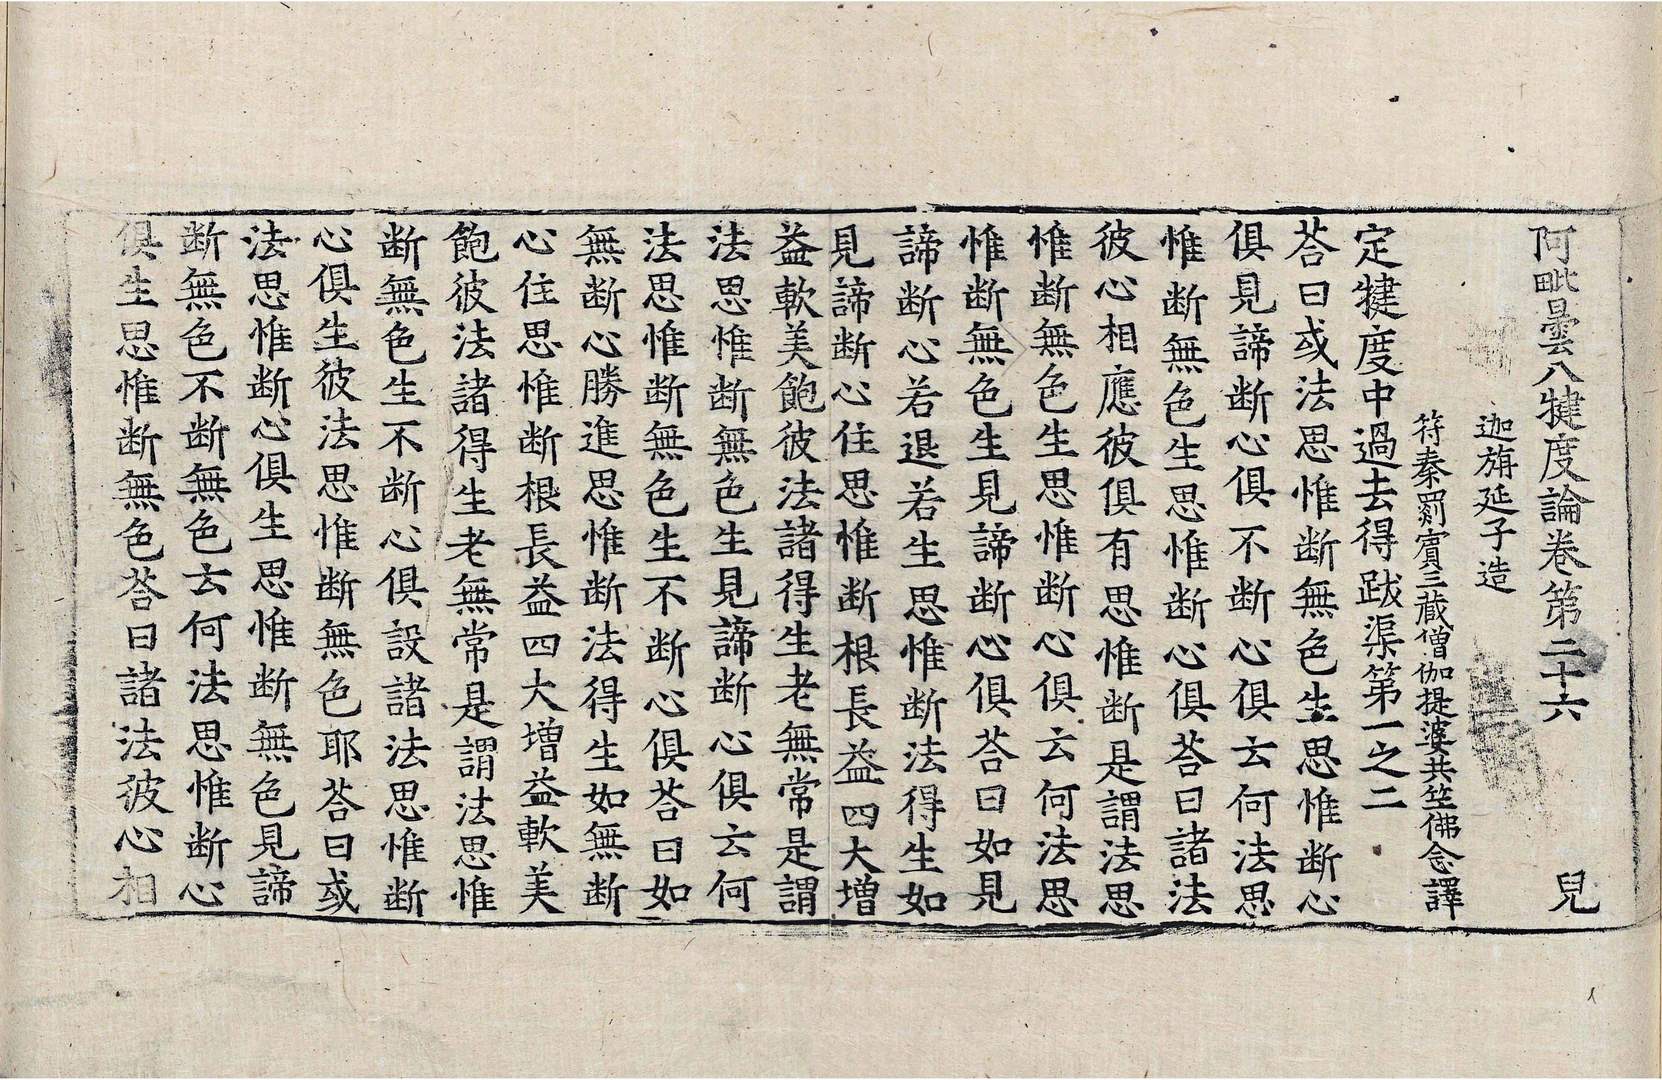 阿毗曇八犍度論卷第二十六 兒
迦旃延子造
符秦罽賓三藏僧伽提婆共竺佛念譯
定犍度中過去得跋渠第一之二
荅曰或法思惟斷無色生思惟斷心
俱見諦斷心俱不斷心俱云何法思
惟斷無色生思惟斷心俱荅曰諸法
彼心相應彼俱有思惟斷是謂法思
惟斷無色生思惟斷心俱云何法思
惟斷無色生見諦斷心俱荅曰如見
諦斷心若退若生思惟斷法得生如
見諦斷心住思惟斷根長益四大增
益軟美飽彼法諸得生老無常是謂
法思惟斷無色生見諦斷心俱云何
法思惟斷無色生不斷心俱荅曰如
無斷心勝進思惟斷法得生如無斷
心住思惟斷根長益四大增益軟美
飽彼法諸得生老無常是謂法思惟
斷無色生不斷心俱設諸法思惟斷
心俱生彼法思惟斷無色耶荅曰或
法思惟斷心俱生思惟斷無色見諦
斷無色不斷無色云何法思惟斷心
俱生思惟斷無色荅曰諸法彼心相